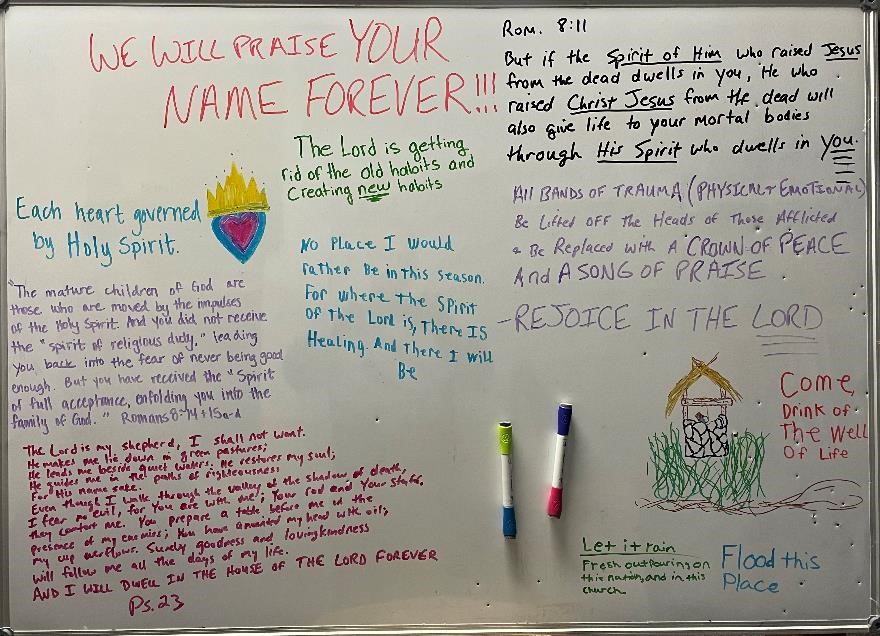 WE WILL PRAISE YOUR
NAME FOREVER!!!
Rom. 8:11
But if the Spirit of Him who raised Jesus
from the dead dwells in you, He who
raised Christ Jesus from the dead will
also give life to your mortal bodies
through His Spirit who dwells in you.
The Lord is getting
rid of the old habits and
Creating new habits
Each heart governed
by Holy Spirit.
All BANDS OF TRAUMA (PHYSICAL + EMOTIONAL)
Be Lifted OFF The Heads of Those Afflicted
+ Be Replaced with A CROWN OF PEACE
And A SONG OF PRAISE
- REJOICE IN THE LORD
No Place I Would
rather Be in this season.
For where the Spirit
Of The Lord is, There IS
Healing. And There I Will
Be
"The mature children of God are
those who are moved by the impulses
of the Holy Spirit. And you did not receive
the "spirit of religious duty," leading
you back into the fear of never being good
enough. But you have received the "Spirit
of full acceptance, enfolding you into the
family of God." Romans 8~14+15a-d
The Lord is my shepherd, I shall not want.
He makes me lie down in green pastures;
He leads me beside quiet waters. He restores my soul;
He guides me in the paths of righteousness
For His name sake.
Even though I walk through the valley of the shadow of death,
I fear no evil, for You are with me; Your rod and Your staff,
they comfort me. You prepare a table before me in the
presence of my enemies; You have anointed my head with oil;
my cup overflows. Surely goodness and lovingkindness
will follow me all the days of my life.
AND I WILL DWELL IN THE HOUSE OF THE LORD FOREVER
Ps. 23
Come,
Drink of
The Well
Of Life
Let it rain
Fresh outpouring on
this nation, and in this
church
Flood this
Place